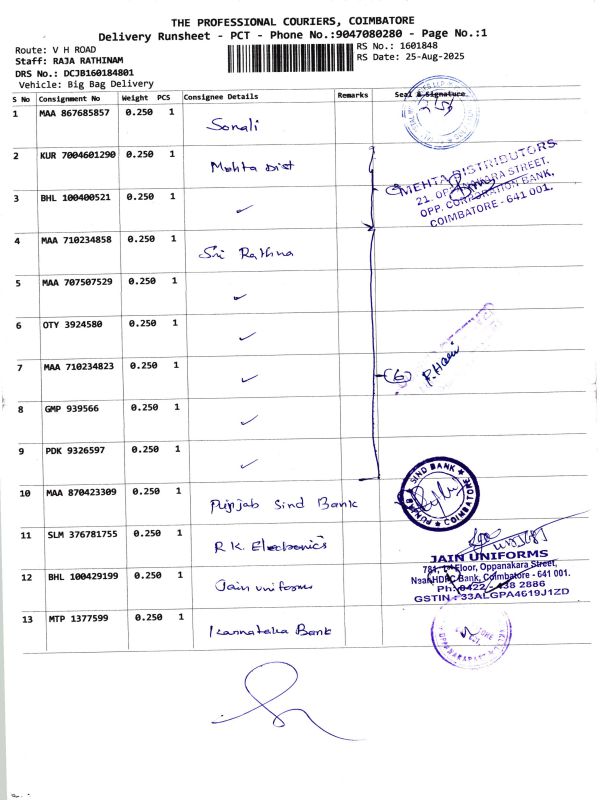 THE PROFESSIONAL COURIERS, COIMBATORE
Delivery Runsheet - PCT - Phone No.:9047080280 - Page No.:1
Route: V H ROAD
RS No.: 1601848
Staff: RAJA RATHINAM
RS Date: 25-Aug-2025
DRS No.: DCJB160184801
Vehicle: Big Bag Delivery
S No Consignment No Weight PCS Consignee Details Remarks Seal & Signature
1 MAA 867685857 0.250 1 Sonali
2 KUR 7004601290 0.250 1 Mehta Dist
MEHTA DISTRIBUTORS
21. OPPANAKARA STREET,
OPP. CORPORATION BANK,
COIMBATORE - 641 001.
3 BHL 100400521 0.250 1 ✓
4 MAA 710234858 0.250 1 Sri Rathna
5 MAA 707507529 0.250 1 ✓
6 OTY 3924580 0.250 1 ✓
7 MAA 710234823 0.250 1 ✓ (6) P. Hari
8 GMP 939566 0.250 1 ✓
9 PDK 9326597 0.250 1 ✓
10 MAA 870423309 0.250 1 Punjab Sind Bank
PUNJAB & SIND BANK ★ COIMBATORE ★
11 SLM 376781755 0.250 1 R.K. Electronics
12 BHL 100429199 0.250 1 Jain uniforms
JAIN UNIFORMS
781, 1st Floor, Oppanakara Street,
Near HDFC Bank, Coimbatore - 641 001.
Ph: 0422 - 438 2886
GSTIN : 33ALGPA4619J1ZD
13 MTP 1377599 0.250 1 Karnataka Bank